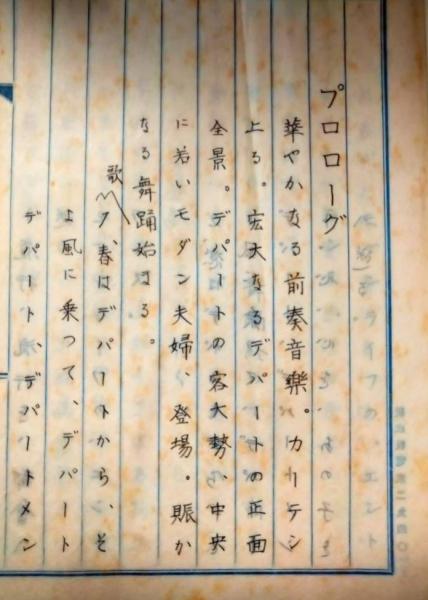 プロローグ
華やかなる前奏音樂。カーテン
上る。宏大なるデパートの正面
全景。デパートの客大勢、中央
に若いモダン夫婦、登場。賑か
なる舞踊始まる。
歌〽春はデパートから、そ
よ風に乗つて、デパート
デパート、デパートメン